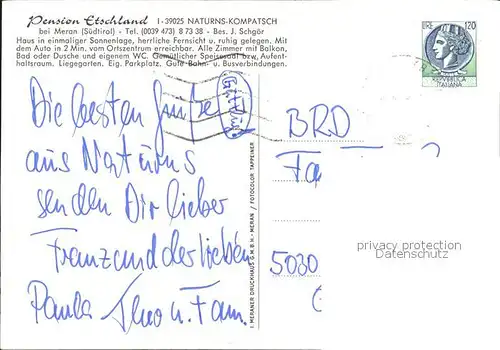 Pension Etschland I-39025 NATURNS-KOMPATSCH
bei Meran (Südtirol) - Tel. (0039 473) 8 73 38 - Bes. J. Schgör
Haus in einmaliger Sonnenlage, herrliche Fernsicht u. ruhig gelegen. Mit
dem Auto in 2 Min. vom Ortszentrum erreichbar. Alle Zimmer mit Balkon,
Bad oder Dusche und eigenem WC. Gemütlicher Speisesaal bzw. Aufent-
haltsraum. Liegegarten. Eig. Parkplatz. Gute Bahn- u. Busverbindungen.
LIRE 120
REPVBBLICA
ITALIANA
Die besten Grüße
aus Naturns
senden Dir lieber
Franz und der lieben
Paula Theo u. Fam.
I. MERANER DRUCKHAUS G.M.B.H. - MERAN / FOTOCOLOR TAPPEINER
BRD
Fa
5030
privacy protection
Datenschutz